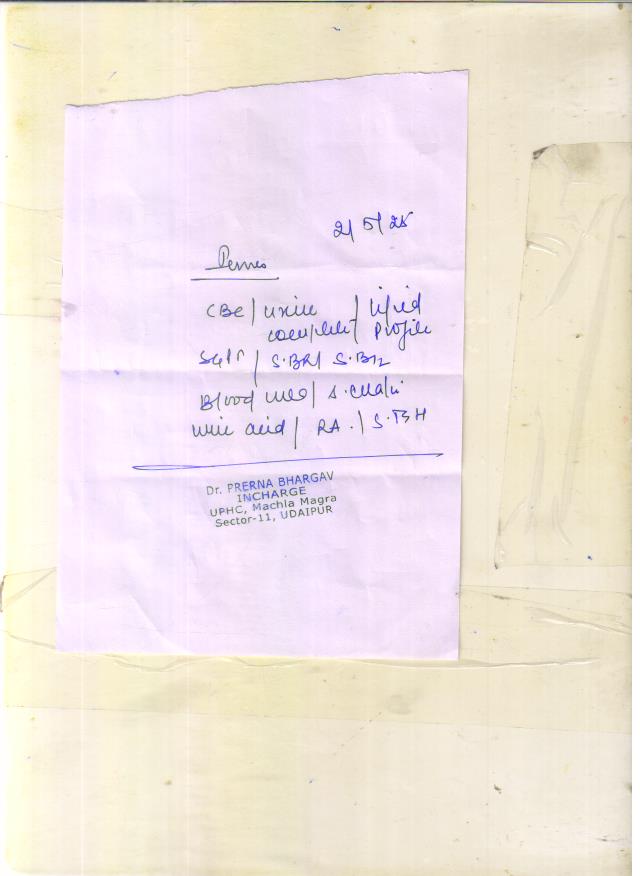 2/5/25
CBC / urine / lipid
complete / Profile
SGPT / S.BR / S.B12
Blood urea / S.
uric acid / RA. / S.TSH
Dr. PRERNA BHARGAV
INCHARGE
UPHC, Machla Magra
Sector-11, UDAIPUR